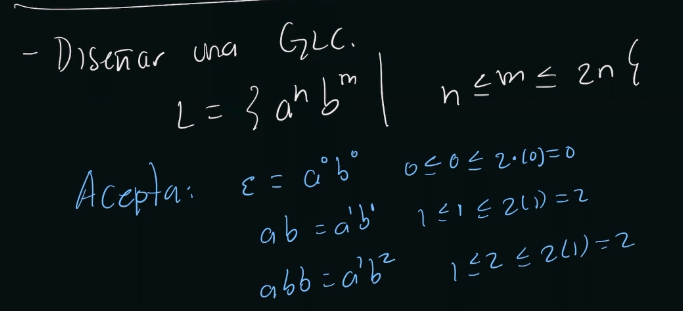 - Diseñar una GLC.
L = { aⁿ bᵐ | n ≤ m ≤ 2n }
Acepta: ε = a⁰b⁰ 0 ≤ 0 ≤ 2·(0)=0
ab = a¹b¹ 1 ≤ 1 ≤ 2(1) = 2
abb = a¹b² 1 ≤ 2 ≤ 2(1) = 2